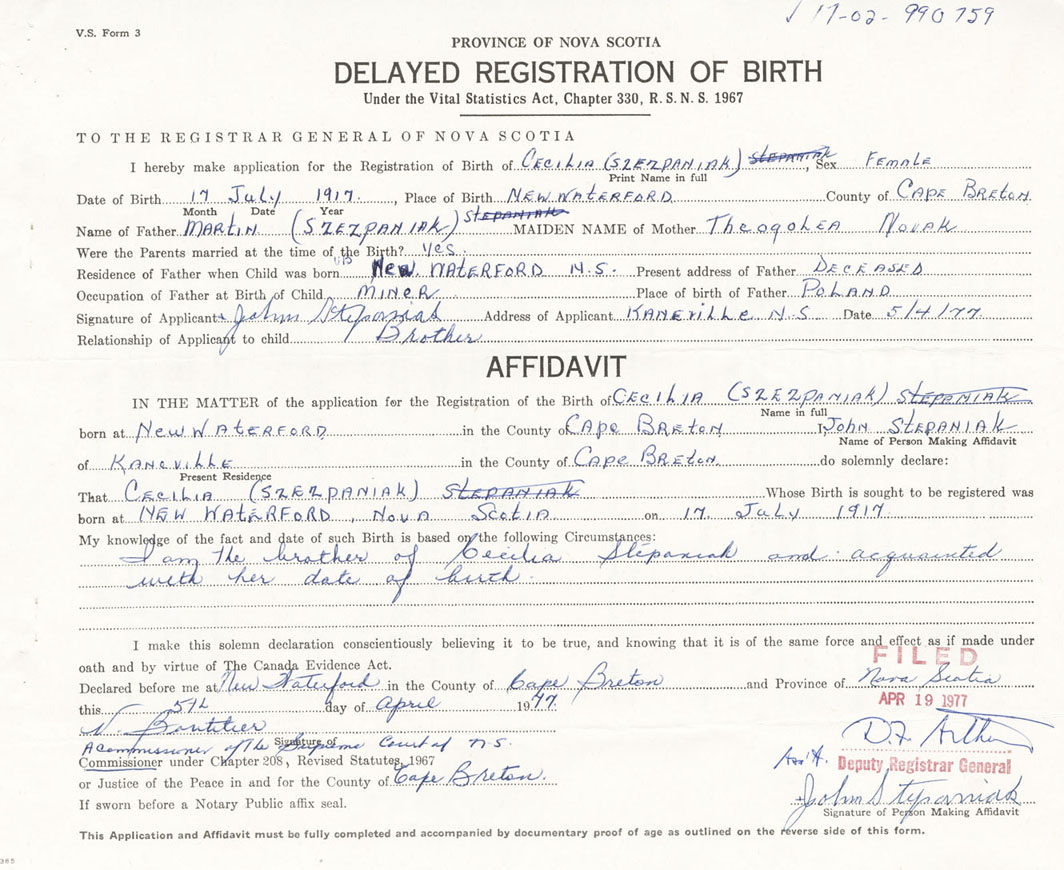 17-02-990759
V.S. Form 3
PROVINCE OF NOVA SCOTIA
DELAYED REGISTRATION OF BIRTH
Under the Vital Statistics Act, Chapter 330, R.S.N.S. 1967
TO THE REGISTRAR GENERAL OF NOVA SCOTIA
I hereby make application for the Registration of Birth of CECILIA (SZEZPANIAK) STEPANIAK, Sex FEMALE
Print Name in full
Date of Birth 17 July 1917, Place of Birth NEW WATERFORD County of CAPE BRETON
Month Date Year
Name of Father MARTIN (SZEZPANIAK) STEPANIAK MAIDEN NAME of Mother THEOGOLEA NOVAK
Were the Parents married at the time of the Birth? Yes
Residence of Father when Child was born New WATERFORD N.S. Present address of Father DECEASED
Occupation of Father at Birth of Child MINER Place of birth of Father POLAND
Signature of Applicant John Stepaniak Address of Applicant KANEVILLE N.S. Date 5/4/77
Relationship of Applicant to child Brother
AFFIDAVIT
IN THE MATTER of the application for the Registration of the Birth of CECILIA (SZEZPANIAK) STEPANIAK
Name in full
born at NEW WATERFORD in the County of CAPE BRETON I, JOHN STEPANIAK
Name of Person Making Affidavit
of KANEVILLE in the County of CAPE BRETON do solemnly declare:
Present Residence
That CECILIA (SZEZPANIAK) STEPANIAK Whose Birth is sought to be registered was
born at NEW WATERFORD, NOVA SCOTIA on 17 July 1917
My knowledge of the fact and date of such Birth is based on the following Circumstances:
I am the brother of Cecilia Stepaniak and acquainted
with her date of birth.
I make this solemn declaration conscientiously believing it to be true, and knowing that it is of the same force and effect as if made under
oath and by virtue of The Canada Evidence Act.
FILED
Declared before me at New Waterford in the County of Cape Breton and Province of Nova Scotia
this 5th day of April 1977
APR 19 1977
N. Boutilier
D.F. Arthur
Signature of
A Commissioner of The Supreme Court of N.S.
Commissioner under Chapter 208, Revised Statutes, 1967
Ass't. Deputy Registrar General
or Justice of the Peace in and for the County of Cape Breton.
John Stepaniak
If sworn before a Notary Public affix seal.
Signature of Person Making Affidavit
This Application and Affidavit must be fully completed and accompanied by documentary proof of age as outlined on the reverse side of this form.